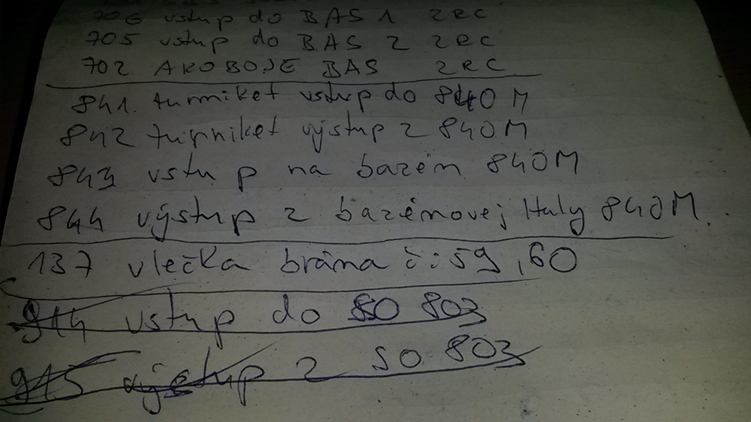 706 vstup do BAS 1 2RC
705 vstup do BAS 2 2RC
702 AKOBOJE BAS 2RC
841. turniket vstup do 840M
842 turniket výstup z 840M
843 vstup na bazén 840M
844 výstup z bazénovej Haly 840M.
137 vlečka brána č:59,60
914 vstup do SO 803
915 výstup z SO 803